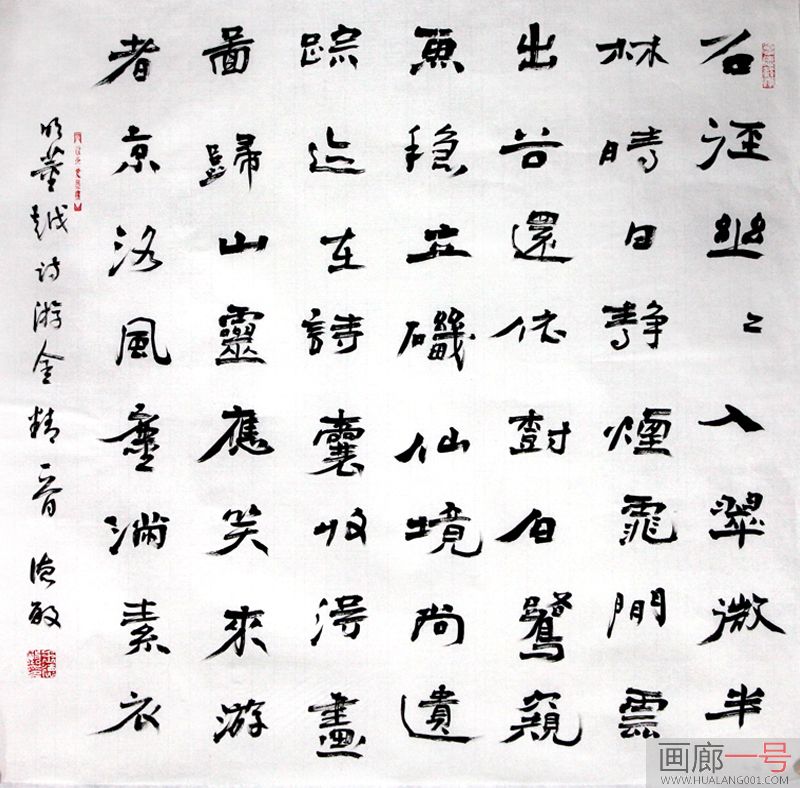 石徑幽〻入翠微半
林晴日静煙霏閒雲
出谷還依樹白鷺窺
魚稳立磯仙境尚遺
踪迹在詩囊收得畫
圖歸山靈應笑來游
者京洛風塵滿素衣
明董越诗游金精一首 德敏
画廊一号
WWW.HUALANG001.COM